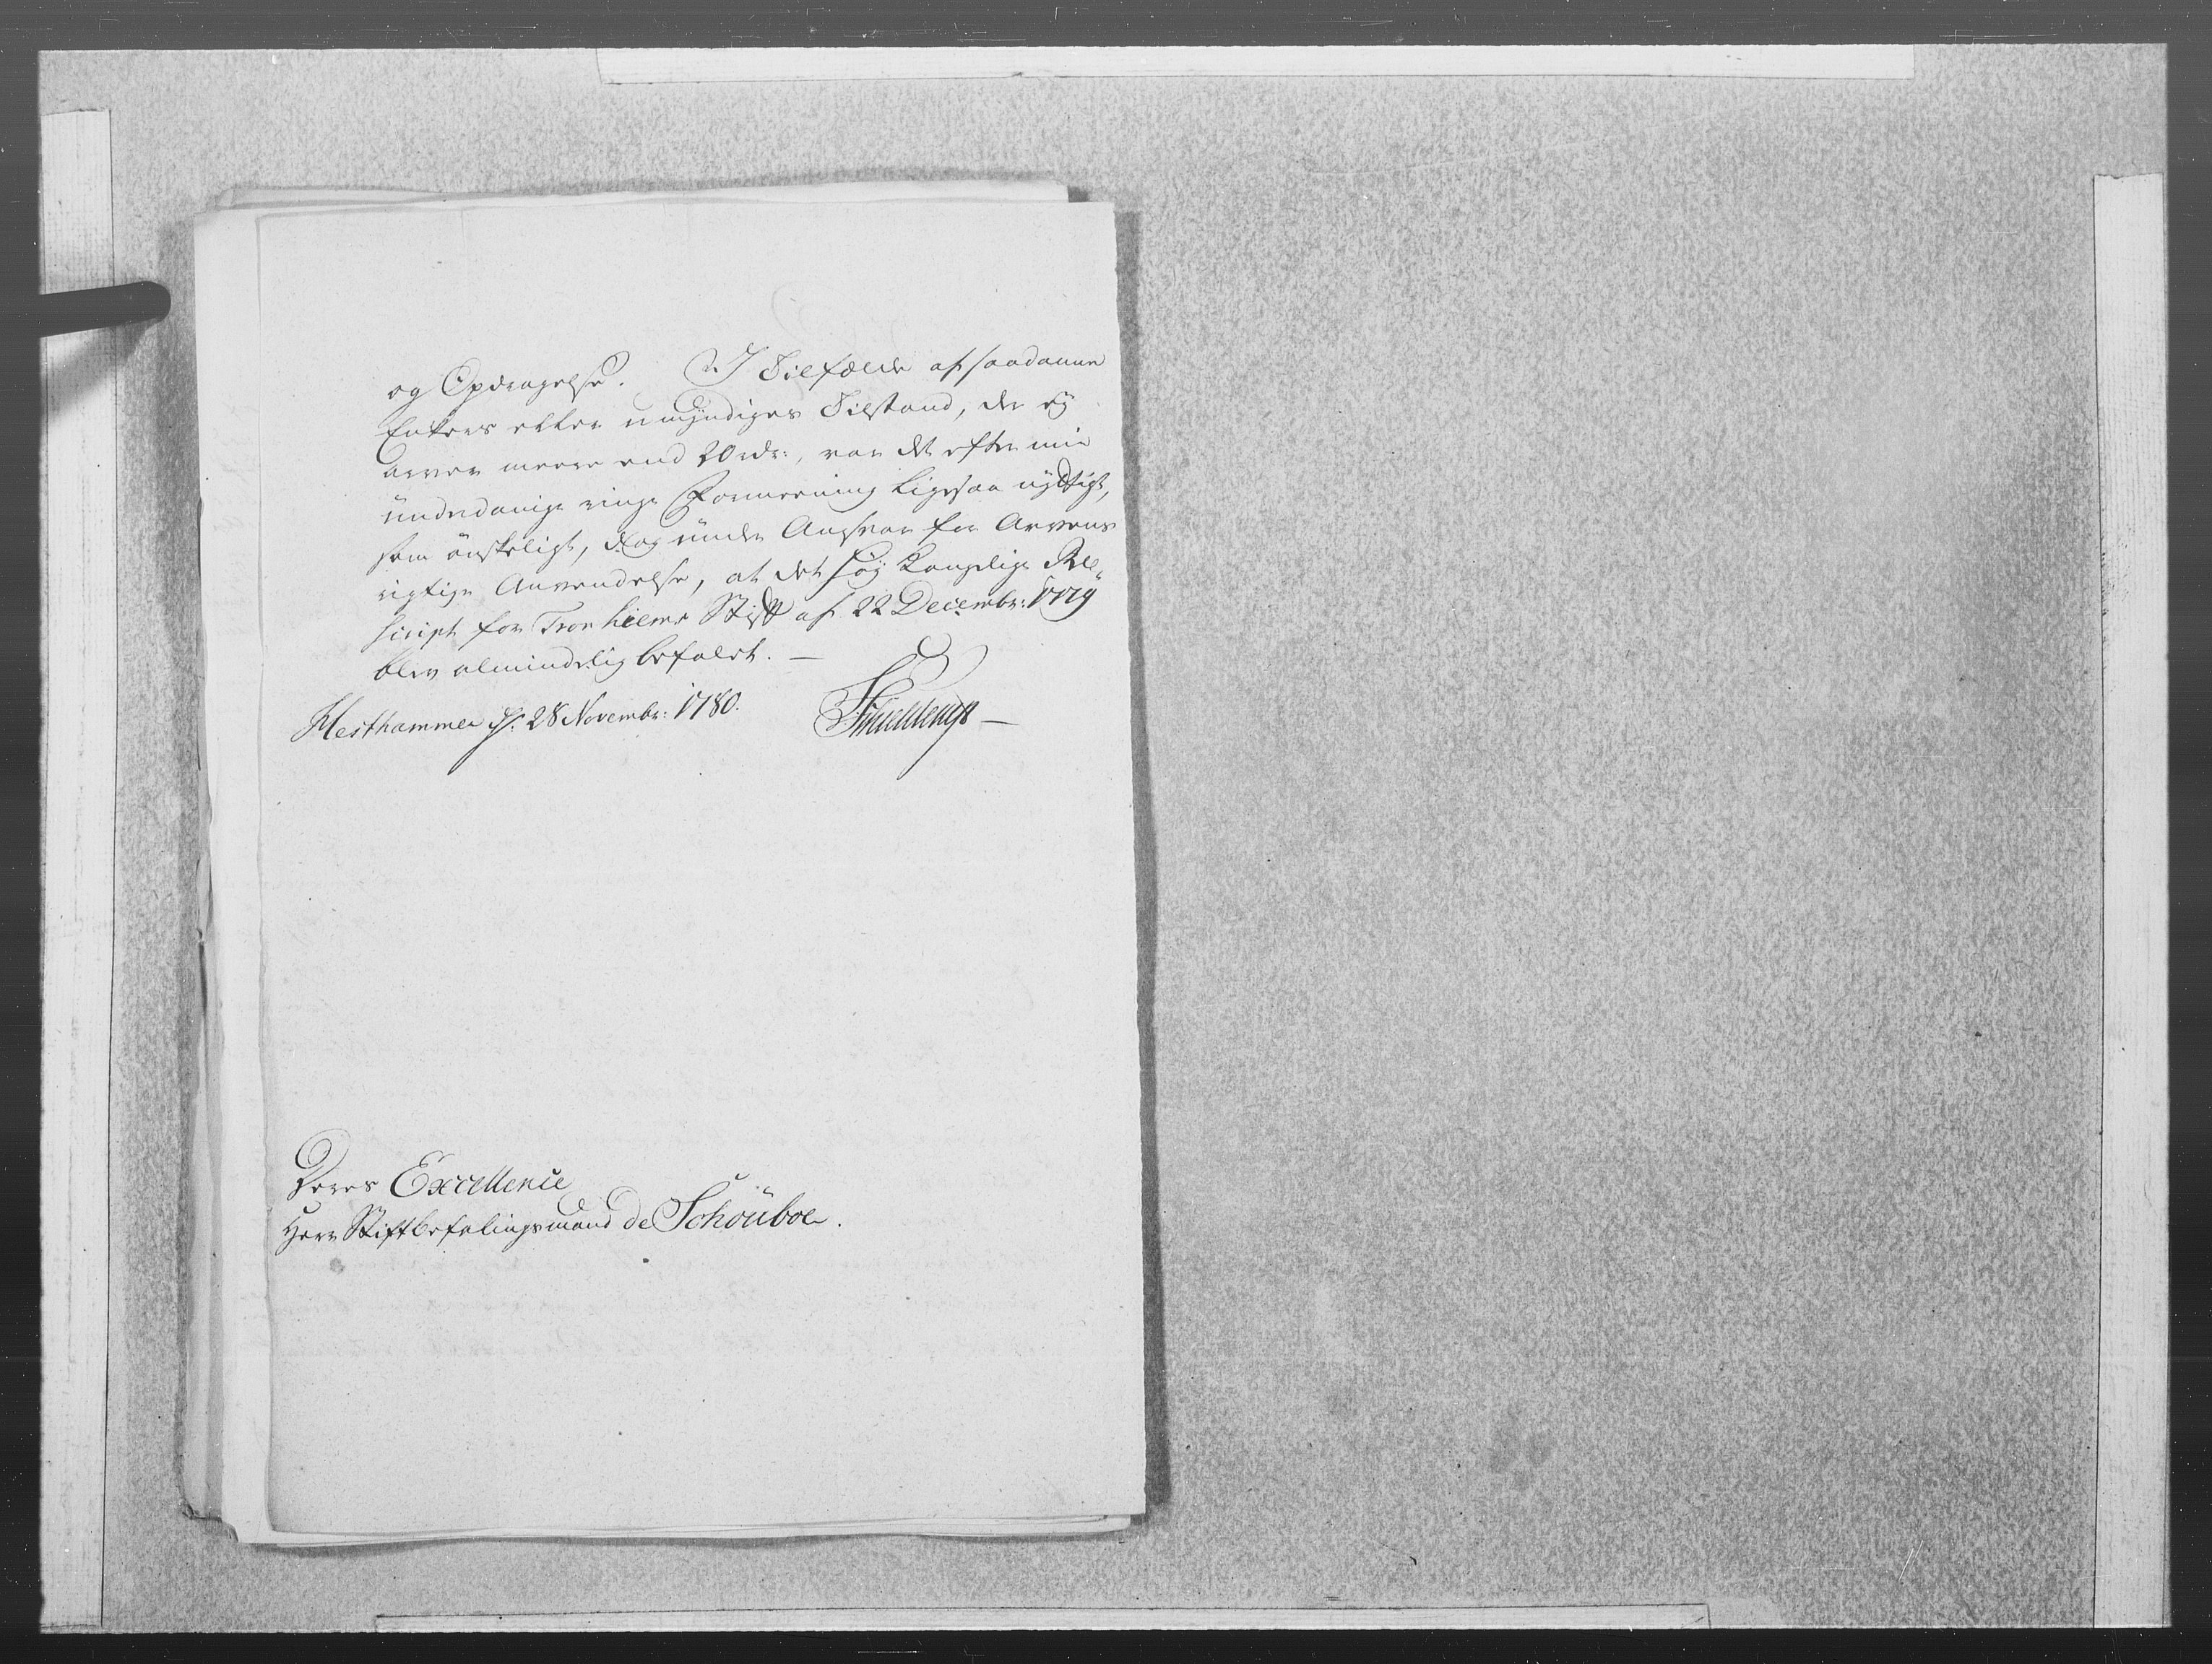 og Opdragelse. I Tilfælde af saadanne
Enkers eller umyndiges Tilstand, der ey
arver meere end 20 rdr:, var det efter min
underdanige ringe Formeening ligesaa nyttigt,
som ønskeligt, dog under Ansvar for Arvens
rigtige Anvendelse, at det høy Kongelige Re„
script for Tronhiems Stift af 22 Decembr: 1779
blev almindelig befalet. —
Hesthammer d. 28 Novembr: 1780.
Deres Excellence
Herr Stiftbefalingsmand de Schouboe.